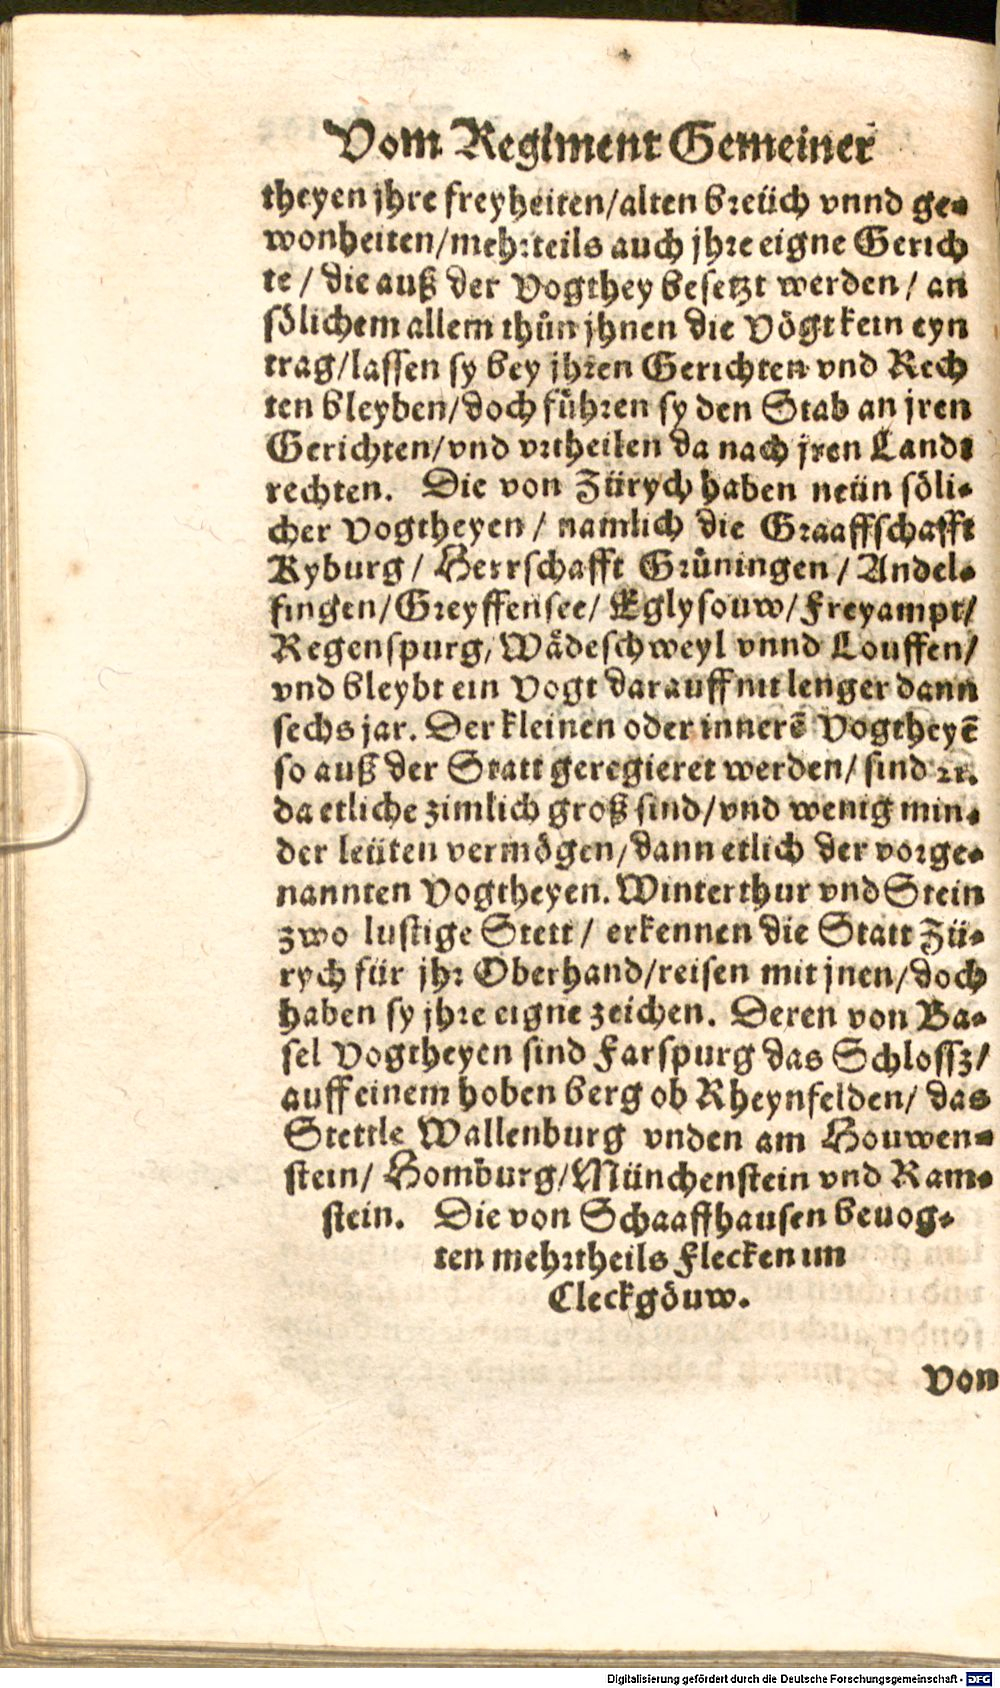 Vom Regiment Gemeiner
theyen jhre freyheiten/alten breüch vnnd ge-
wonheiten/mehrteils auch jhre eigne Gerich
te / die auß der Vogthey besetzt werden/ an
sölichem allem thůn jhnen die Vögt kein eyn
trag/lassen sy bey jhren Gerichten vnd Rech
ten bleyben/doch führen sy den Stab an jren
Gerichten/vnd vrtheilen da nach jren Lands
rechten. Die von Zürych haben neün söli-
cher Vogtheyen / namlich die Graaffschafft
Kyburg/ Herrschafft Grüningen / Andel-
fingen/Greyffensee/ Eglysouw/Freyampt/
Regenspurg/Wådeschweyl vnnd Louffen/
vnd bleybt ein Vogt darauff nit lenger dann
sechs jar. Der kleinen oder innerē Vogtheyē
so auß der Statt geregieret werden/ sind
da etliche zimlich groß sind/vnd wenig min-
der leüten vermögen/dann etlich der vorge-
nannten Vogtheyen. Winterthur vnd Stein
zwo lustige Stett / erkennen die Statt Zü-
rych für jhr Oberhand/reisen mit jnen/doch
haben sy jhre eigne zeichen. Deren von Ba-
sel Vogtheyen sind Farspurg das Schlossz/
auff einem hohen berg ob Rheynfelden/ das
Stettle Wallenburg vnden am Houwen-
stein/ Homburg/Münchenstein vnd Ram-
stein. Die von Schaaffhausen beuog-
ten mehrtheils Flecken im
Cleckgöuw.
Von
Digitalisierung gefördert durch die Deutsche Forschungsgemeinschaft - DFG